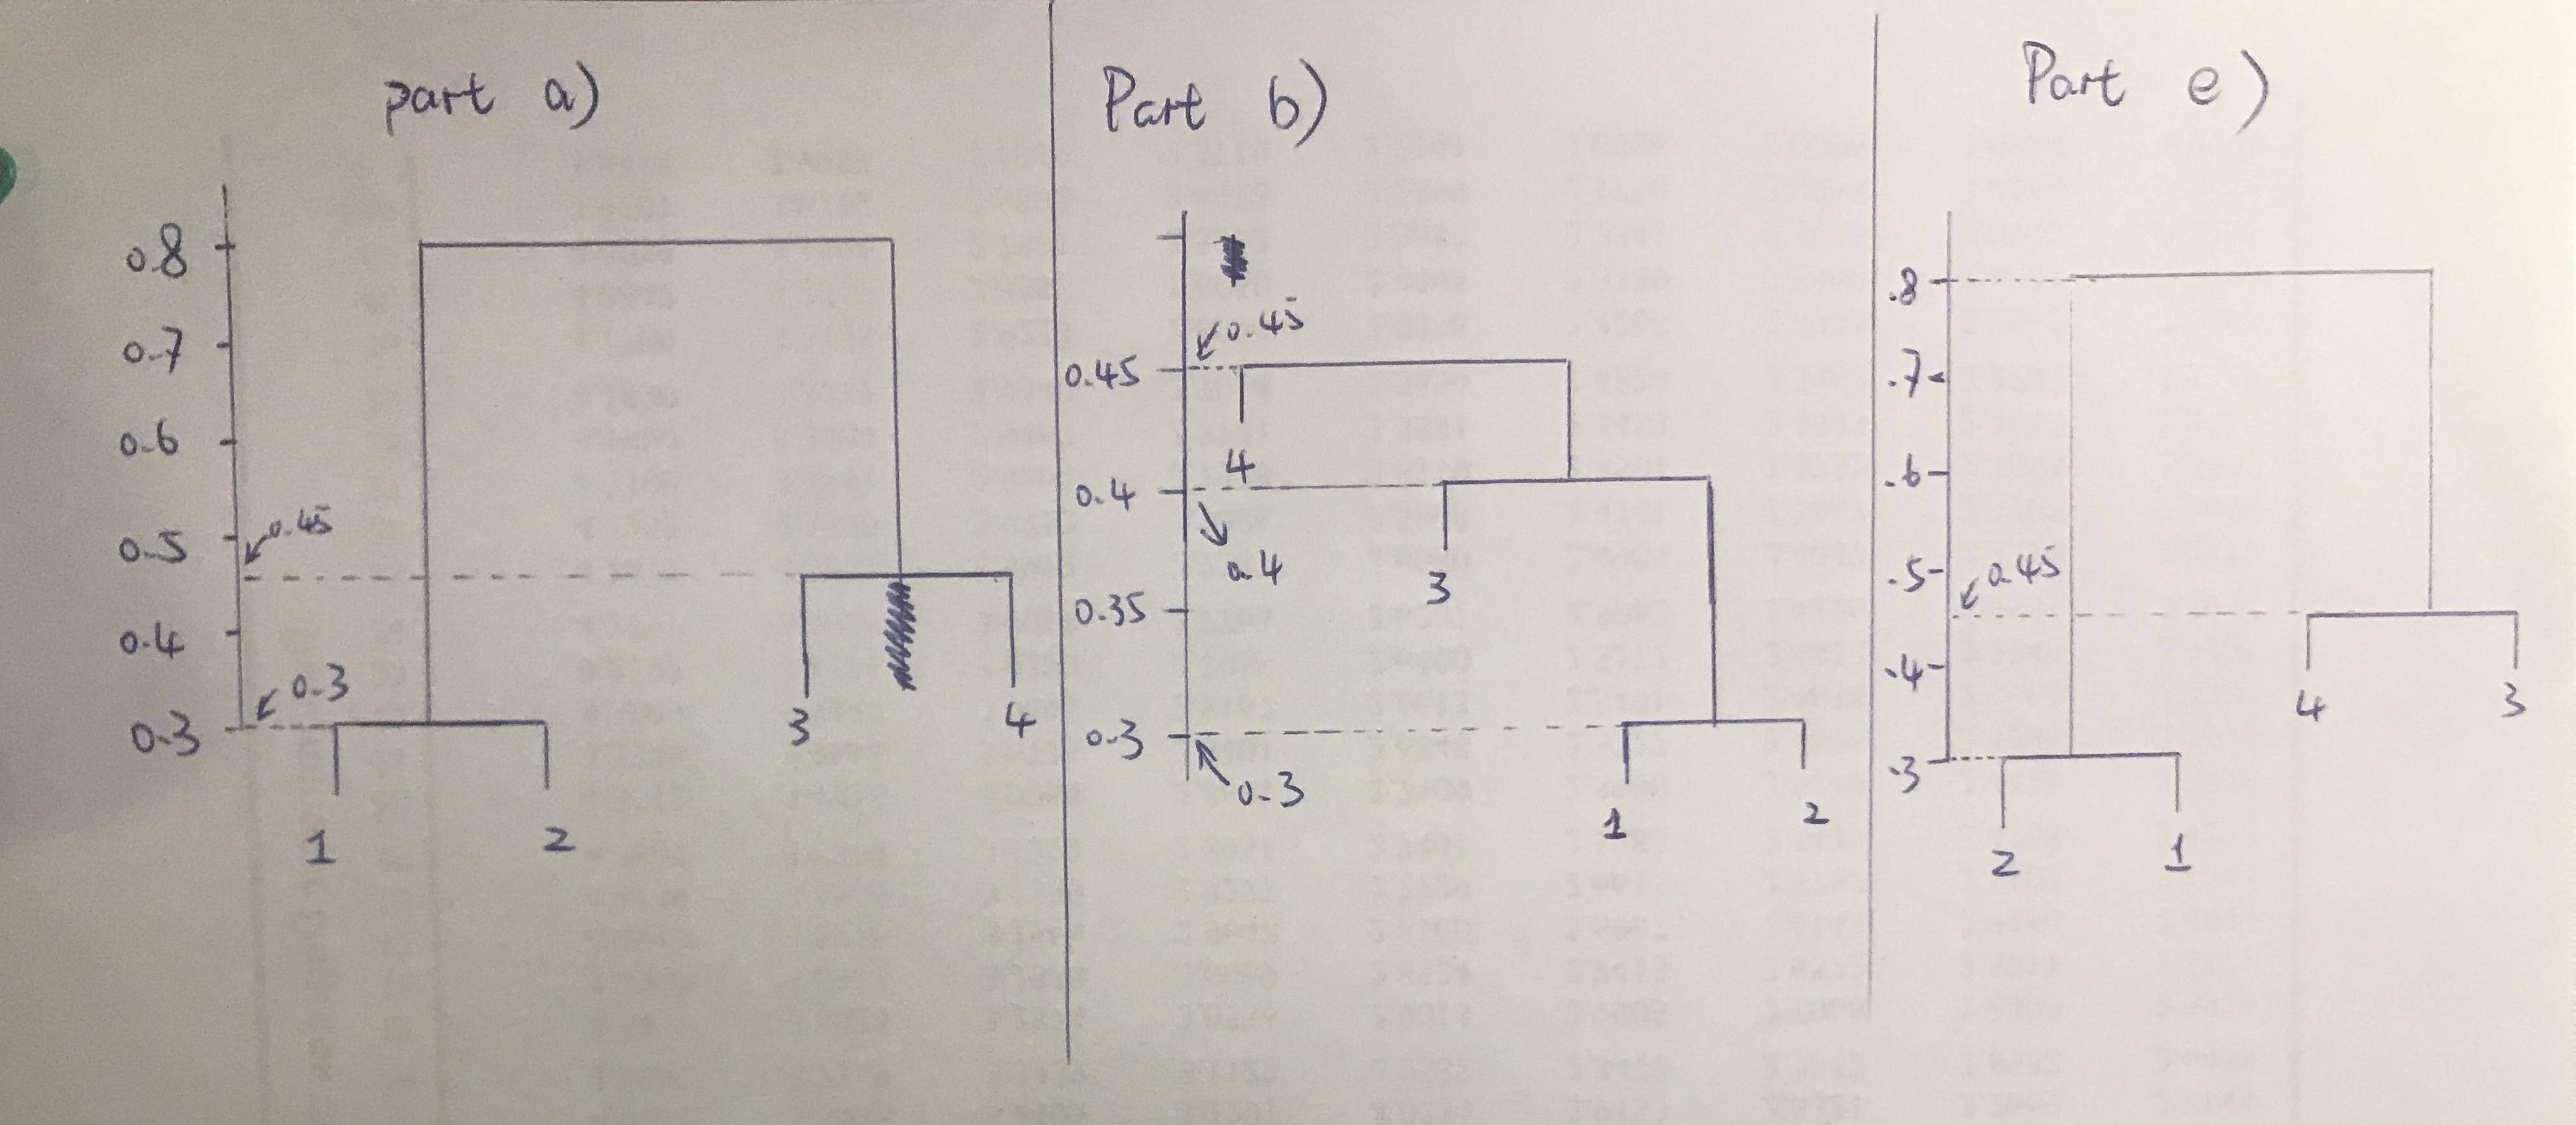 part a)
0.8
0.7
0.6
0.5
0.45
0.4
0.3
0.3
3
4
1
2
Part b)
0.45
0.45
4
0.4
0.4
3
0.35
0.3
0.3
1
2
Part e)
.8
.7
.6
.5
0.45
.4
4
3
.3
2
1